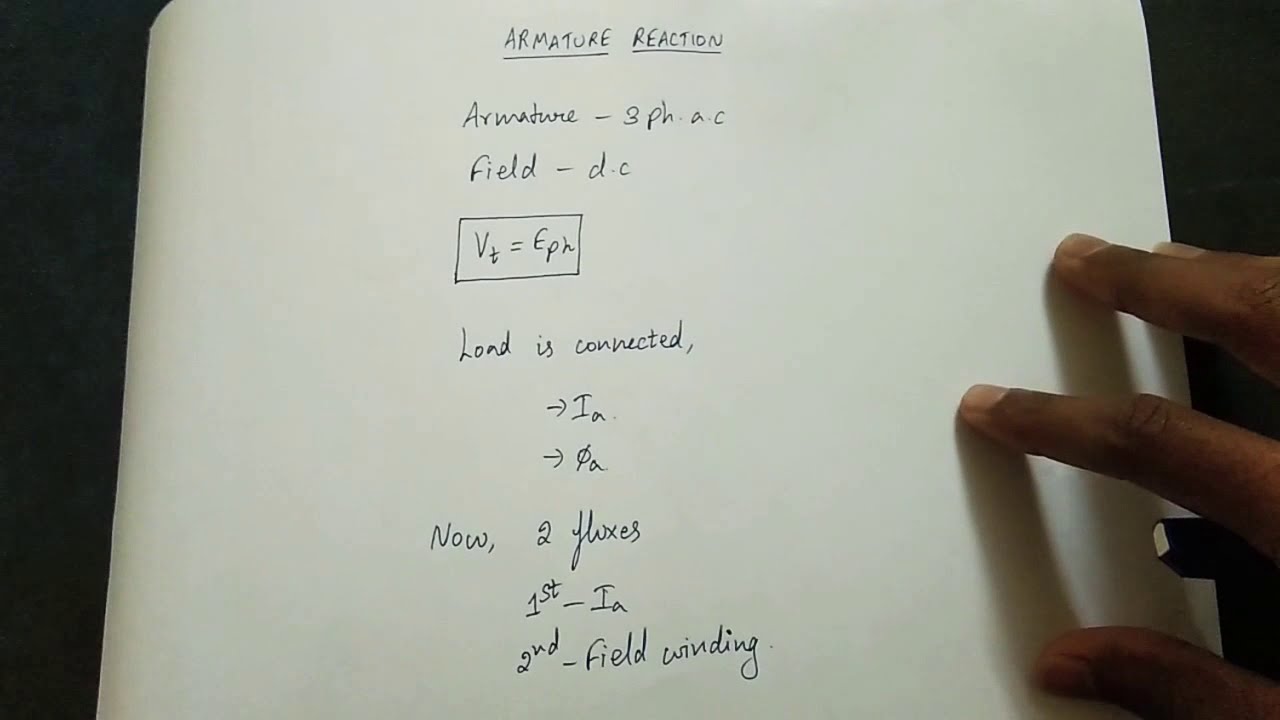 ARMATURE REACTION
Armature - 3 ph. a.c
Field - d.c
Vt = Eph
Load is connected,
→ Ia.
→ ϕa
Now, 2 fluxes
1st - Ia
2nd - Field winding.